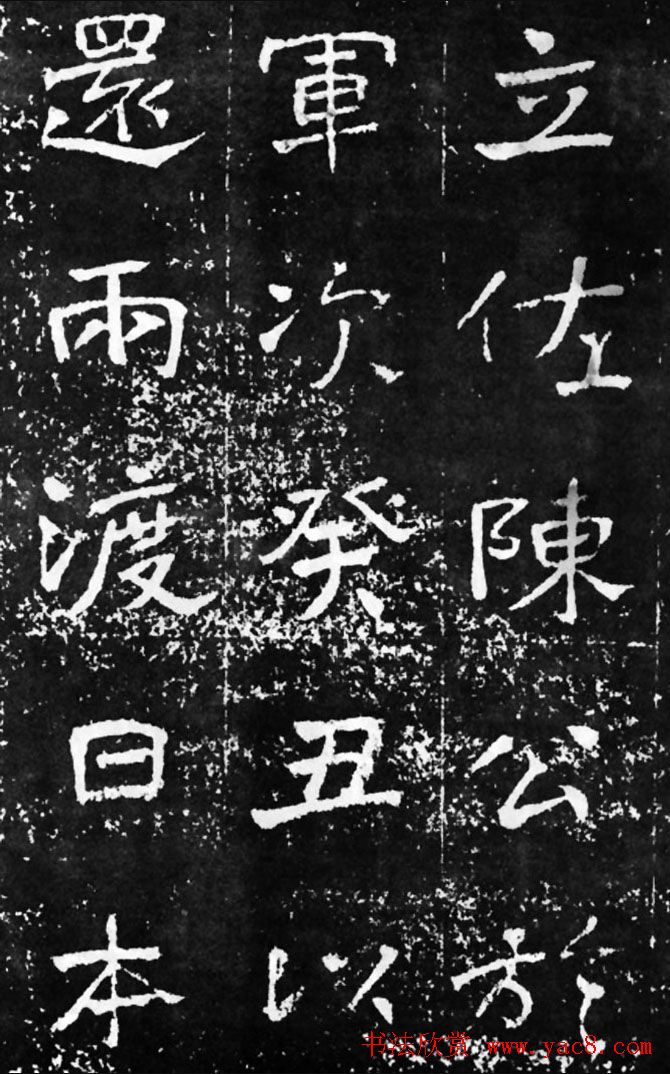 立佐陳公於
軍次癸丑以
還兩渡日本
书法欣赏 www.yac8.com